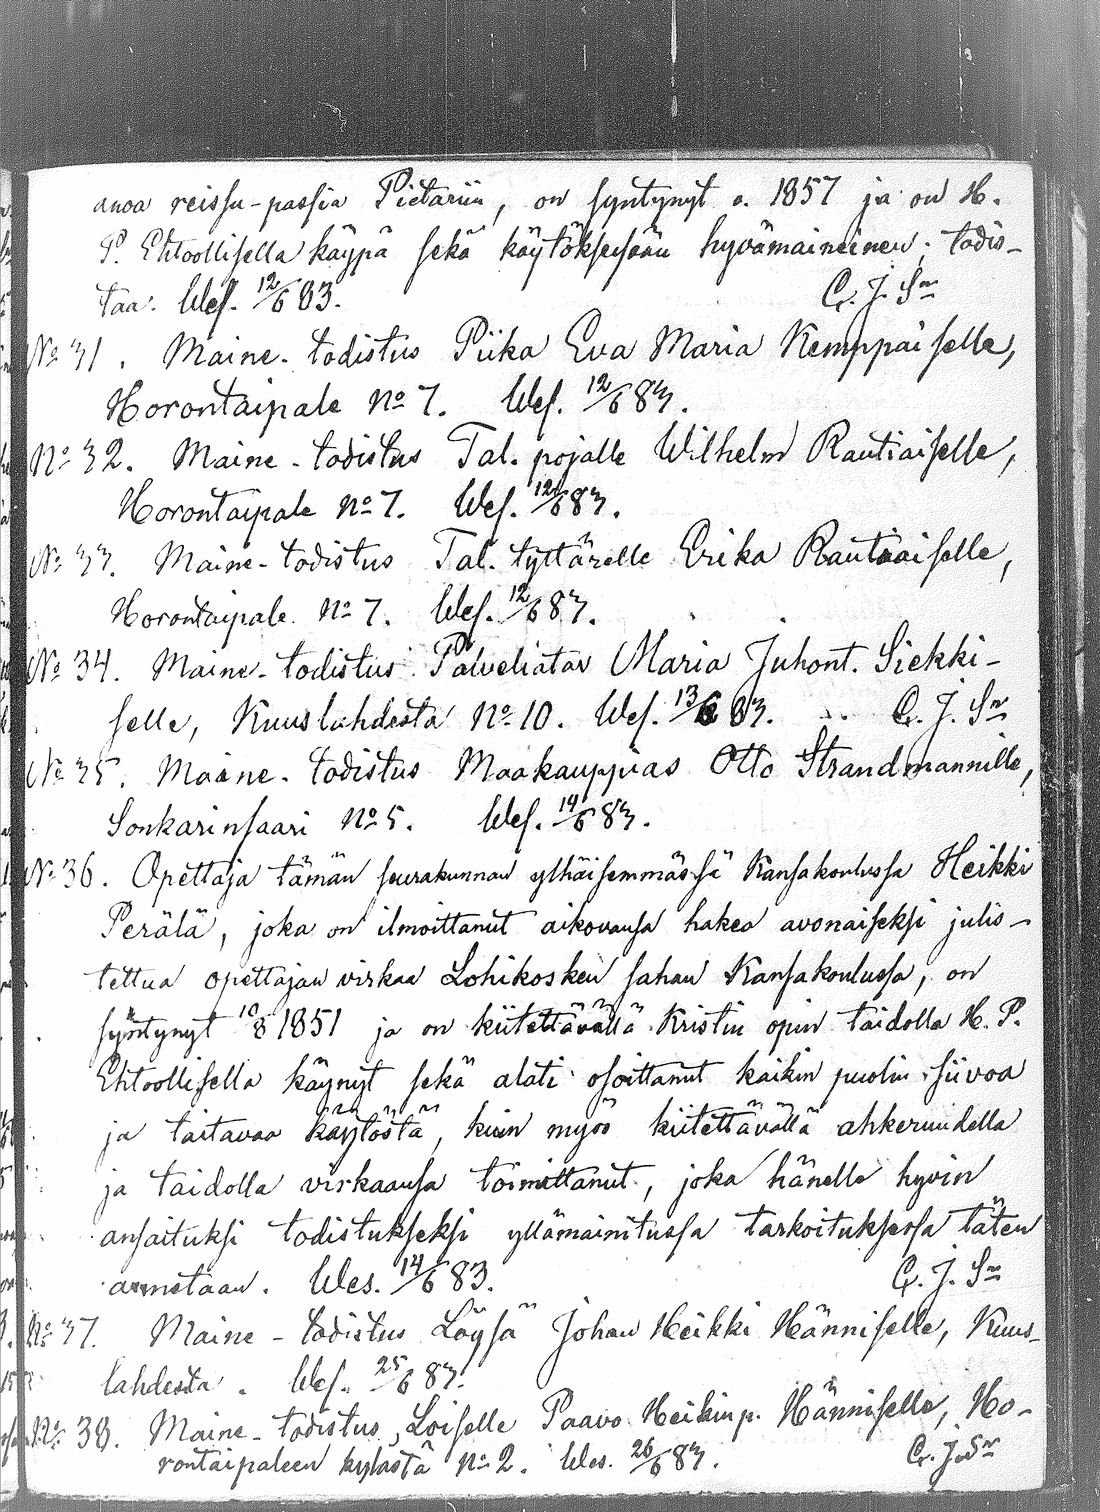 anoa reissu-passia Pietariin, on syntynyt v. 1857 ja on H.
P. Ehtoollisella käypä sekä käytöksessään hyvämaineinen; todis-
taa: Wes. 12/6 83. C. J. Sn
No 31. Maine-todistus Piika Eva Maria Kemppaiselle,
Horontaipale No 7. Wes. 12/6 83.
No 32. Maine-todistus Tal. pojalle Wilhelm Rautiaiselle,
Horontaipale No 7. Wes. 12/6 83.
No 33. Maine-todistus Tal. tyttärelle Erika Rautiaiselle,
Horontaipale No 7. Wes. 12/6 83.
No 34. Maine-todistus Palveliatar Maria Juhont. Siekki-
selle, Kuuslahdesta No 10. Wes. 13/6 83. C. J. Sn
No 35. Maine-todistus Maakauppias Otto Strandmannille,
Sonkarinsaari No 5. Wes. 14/6 83.
No 36. Opettaja tämän seurakunnan ylhäisemmässä Kansakoulussa Heikki
Perälä, joka on ilmoittanut aikovansa hakea avonaiseksi julis-
tettua opettajan virkaa Lohikosken sahan Kansakoulussa, on
syntynyt 10/8 1851 ja on kiitettävällä Kristin opin taidolla H. P.
Ehtoollisella käynyt sekä alati osoittanut kaikin puolin siivoa
ja taitavaa käytöstä, kuin myös kiitettävällä ahkeruudella
ja taidolla virkaansa toimittanut, joka hänelle hyvin
ansaituksi todistukseksi yllämainitussa tarkoituksessa täten
annetaan. Wes. 14/6 83. C. J. Sn
No 37. Maine-todistus Löysä Johan Heikki Hänniselle, Kuus-
lahdesta. Wes. 25/6 83.
No 38. Maine-todistus, Loiselle Paavo Heikinp. Hänniselle, Ho-
rontaipaleen kylästä No 2. Wes. 26/6 83. C. J. Sn